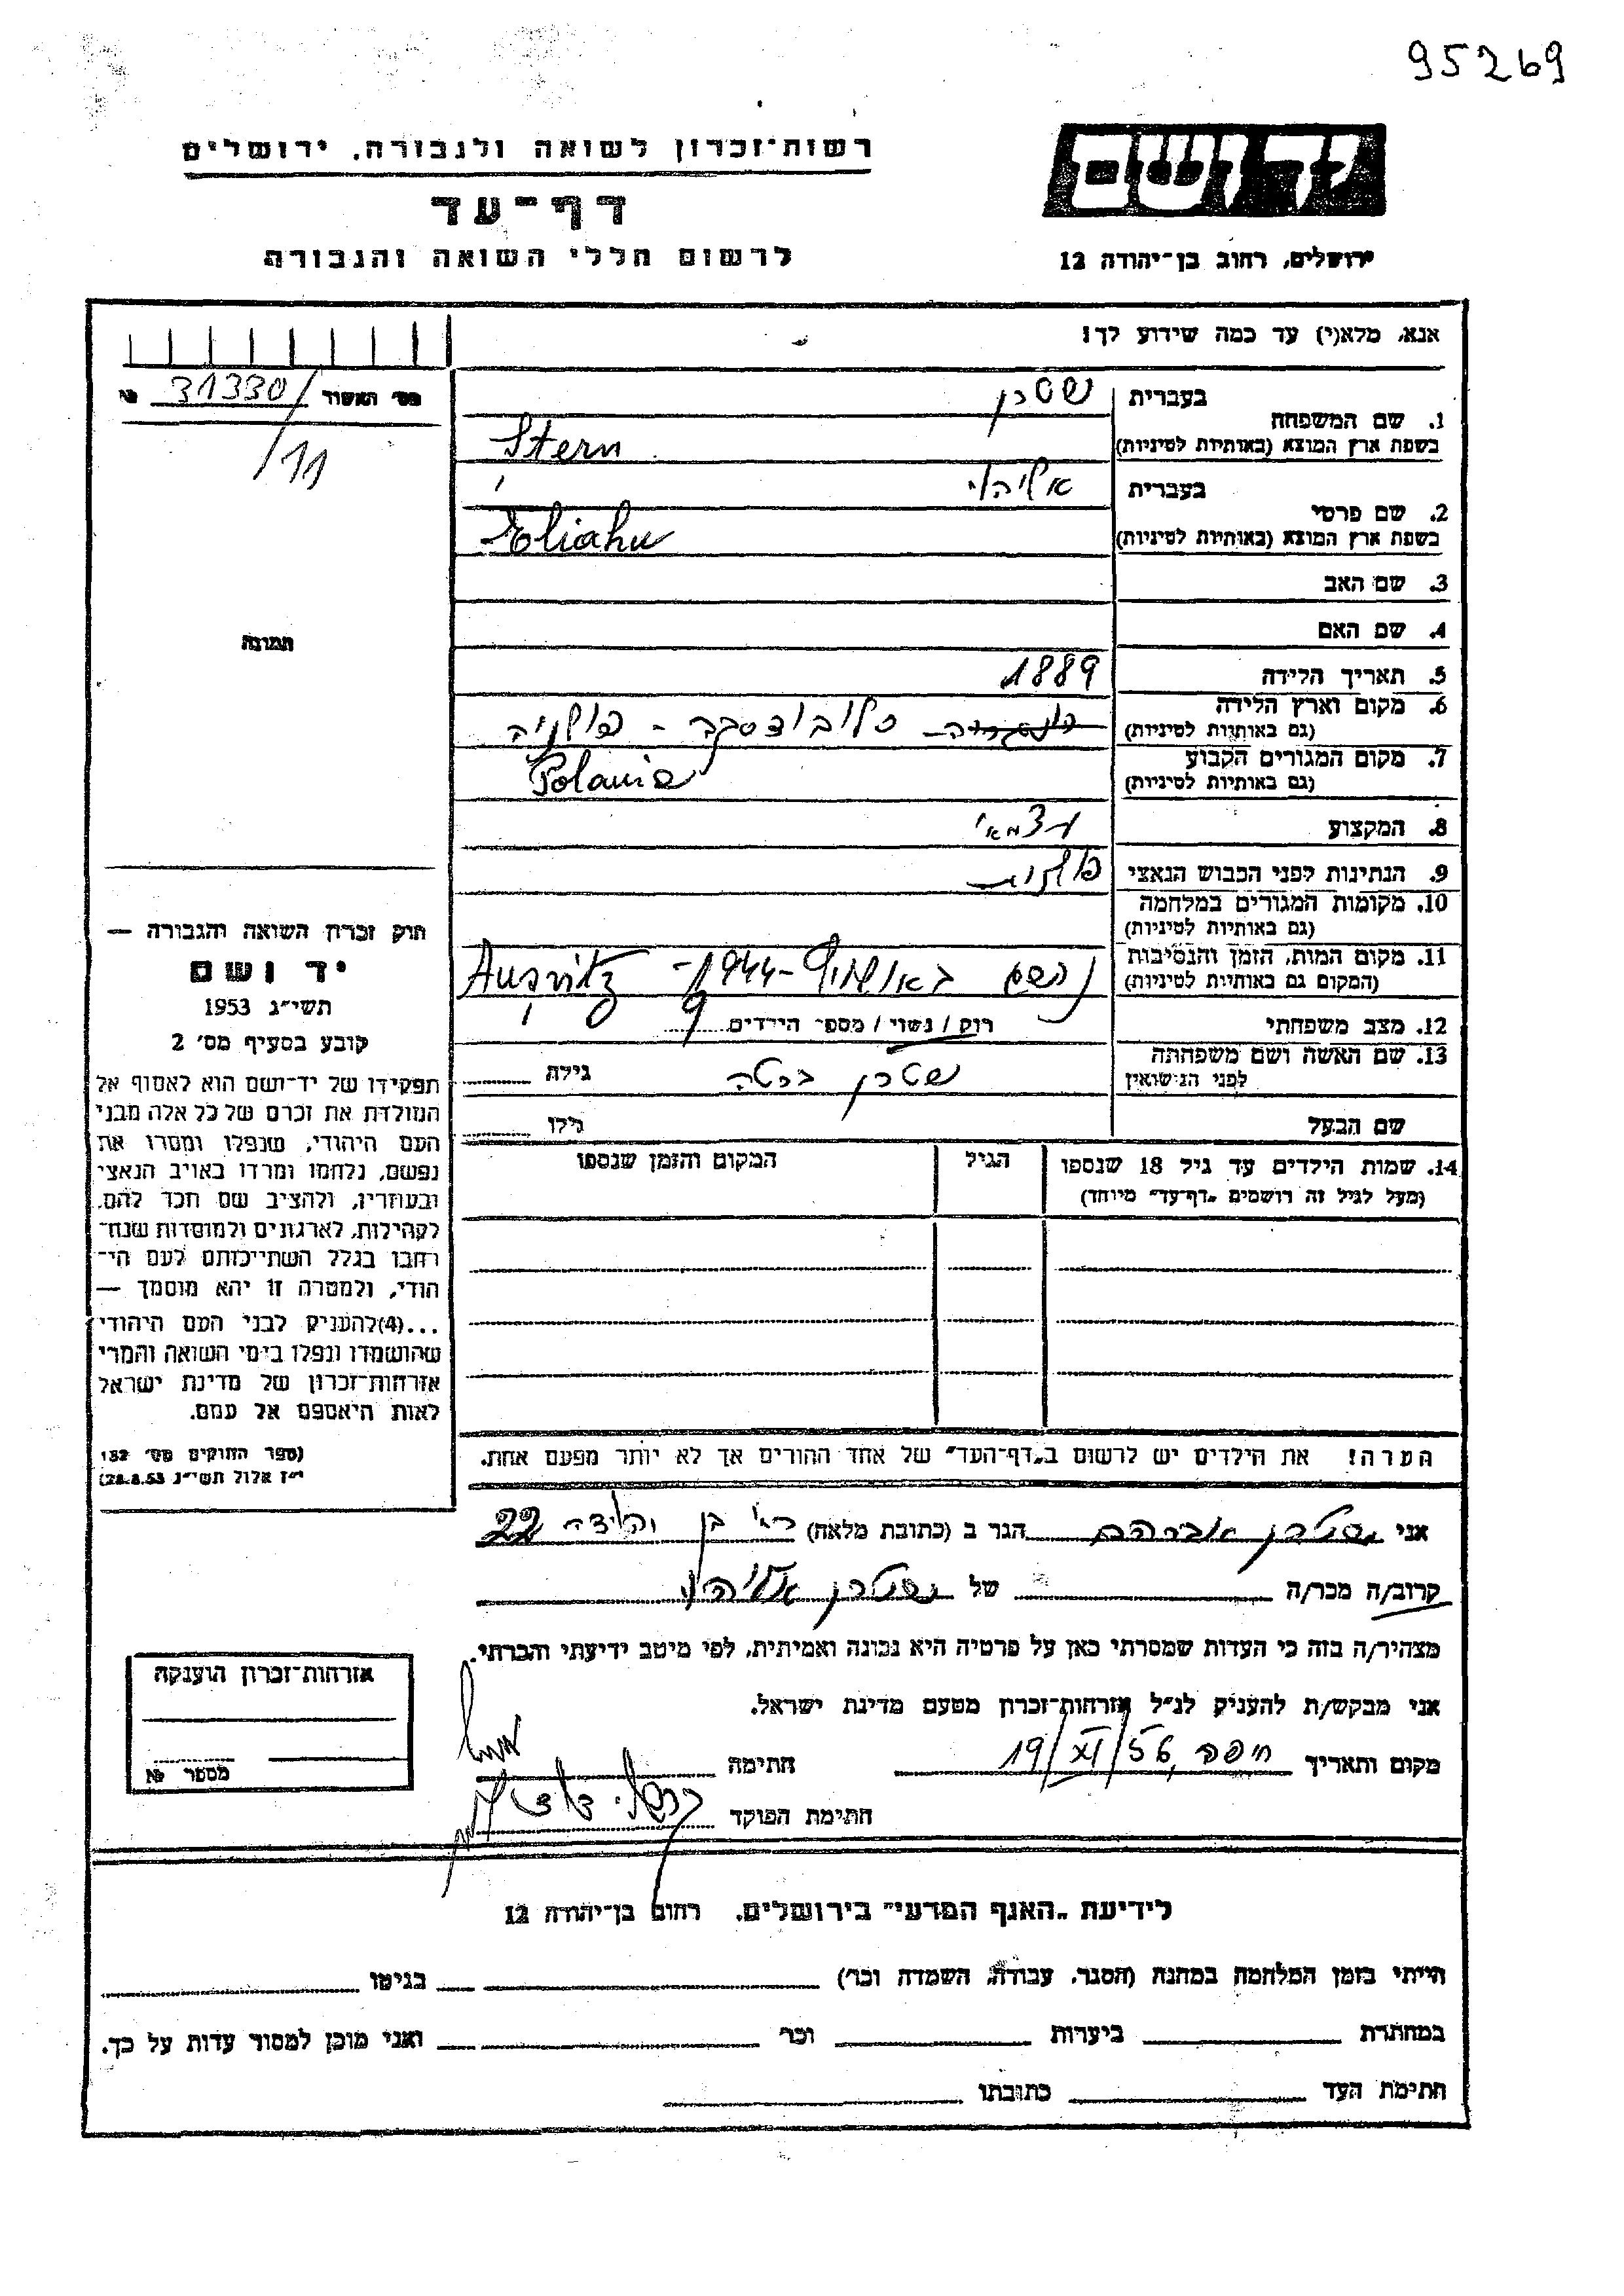 95269
יד ושם
רשות־זכרון לשואה ולגבורה, ירושלים
דף־עד
לרשום חללי השואה והגבורה
ירושלים, רחוב בן־יהודה 12
אנא, מלא(י) עד כמה שידוע לך!
מס׳ האשור 31330/ №
/11
1. שם המשפחה
בעברית שטרן
בשפת ארץ המוצא (באותיות לטיניות) Stern
2. שם פרטי
בעברית אליהו
בשפת ארץ המוצא (באותיות לטיניות) Eliahu
3. שם האב
4. שם האם
תמונה
5. תאריך הלידה 1889
6. מקום וארץ הלידה
(גם באותיות לטיניות) פולניה
7. מקום המגורים הקבוע
(גם באותיות לטיניות) Polania
8. המקצוע עצמאי
9. הנתינות לפני הכבוש הנאצי פולנית
10. מקומות המגורים במלחמה
(גם באותיות לטיניות)
11. מקום המות, הזמן והנסיבות
(המקום גם באותיות לטיניות) נספה באושוויץ -1944-
12. מצב משפחתי רוק / נשוי / מספר הילדים 9
13. שם האשה ושם משפחתה
לפני הנישואין שטרן ברטה גילה
שם הבעל גילו
14. שמות הילדים עד גיל 18 שנספו הגיל המקום והזמן שנספו
(מעל לגיל זה רושמים "דף־עד" מיוחד)
חוק זכרון השואה והגבורה —
יד ושם
תשי״ג 1953
קובע בסעיף מס׳ 2
תפקידו של יד־ושם הוא לאסוף אל
המולדת את זכרם של כל אלה מבני
העם היהודי, שנפלו ומסרו את
נפשם, נלחמו ומרדו באויב הנאצי
ובעוזריו, ולהציב שם וזכר להם,
לקהילות, לארגונים ולמוסדות שנח־
רבו בגלל השתייכותם לעם הי־
הודי, ולמטרה זו יהא מוסמך —
...(4)להעניק לבני העם היהודי
שהושמדו ונפלו בימי השואה והמרי
אזרחות־זכרון של מדינת ישראל
לאות היאספם אל עמם.
(ספר החוקים מס׳ 132
י״ז אלול תשי״ג 28.8.53)
הערה! את הילדים יש לרשום ב"דף־העד" של אחד ההורים אך לא יותר מפעם אחת.
אני שטרן אברהם הגר ב (כתובת מלאה) 22
קרוב/ה מכר/ה של שטרן אליהו
מצהיר/ה בזה כי העדות שמסרתי כאן על פרטיה היא נכונה ואמיתית, לפי מיטב ידיעתי והכרתי.
אני מבקש/ת להעניק לנ״ל אזרחות־זכרון מטעם מדינת ישראל.
מקום ותאריך חיפה, 19/XI/56 חתימה
חתימת הפוקד
אזרחות־זכרון הוענקה
מספר №
לידיעת "האגף המדעי" בירושלים, רחוב בן־יהודה 12
הייתי בזמן המלחמה במחנה (הסגר, עבודה, השמדה וכו׳) בגיטו
במחתרת ביערות וכו׳ ואני מוכן למסור עדות על כך.
חתימת העד כתובתו